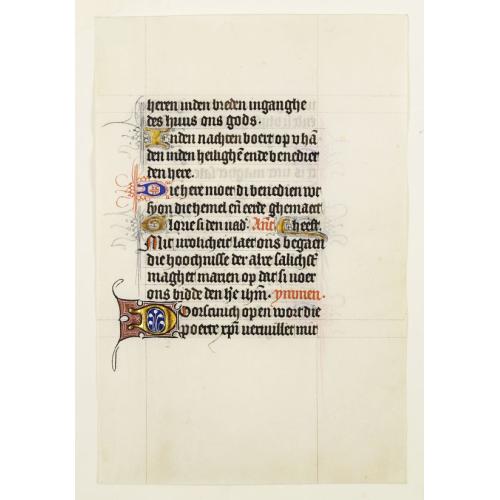 heren inden vreden inganghe
des huus ons gods.
Inden nachten boert op v hā
den inden heilighē ende benedict
den here.
Die here moet di benedien wt
syon die hemel eñ eerde ghemaect
Glorie si den vad. Ant heeft.
Mit vrolicheit laet ons begaen
die hoochnisse der alre salichst
maghet marien op dat si voer
ons bidde den hē ihm. ymnen.
Oorsenich open wort die
poerte xpi veruullet mit